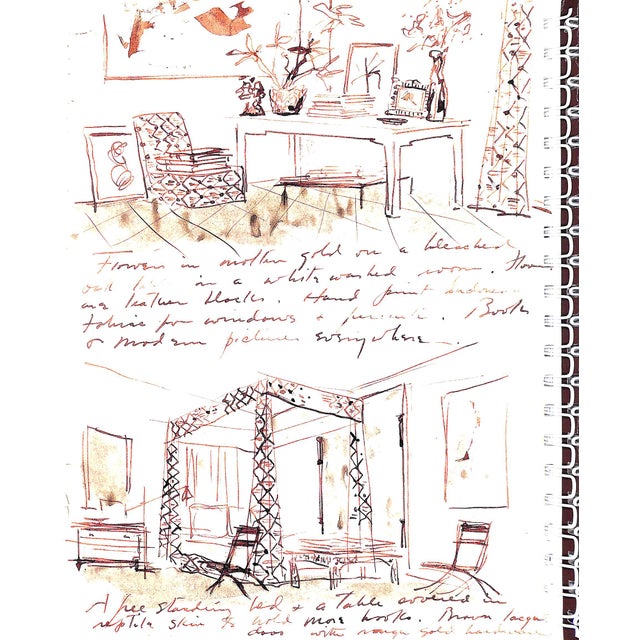 Flowers in molten gold on a bleached
oak in a white washed room. Floors
are leather blocks. Hand print
fabric for windows + Books
+ modern pictures everywhere.
A free standing bed + a table covered in
reptile skin to hold more books. Brown
doors with rough gold